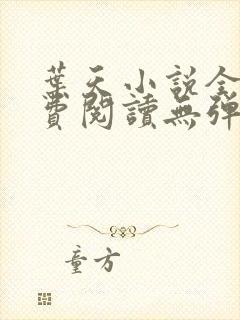 葉天小說全
費閱讀無彈
童方